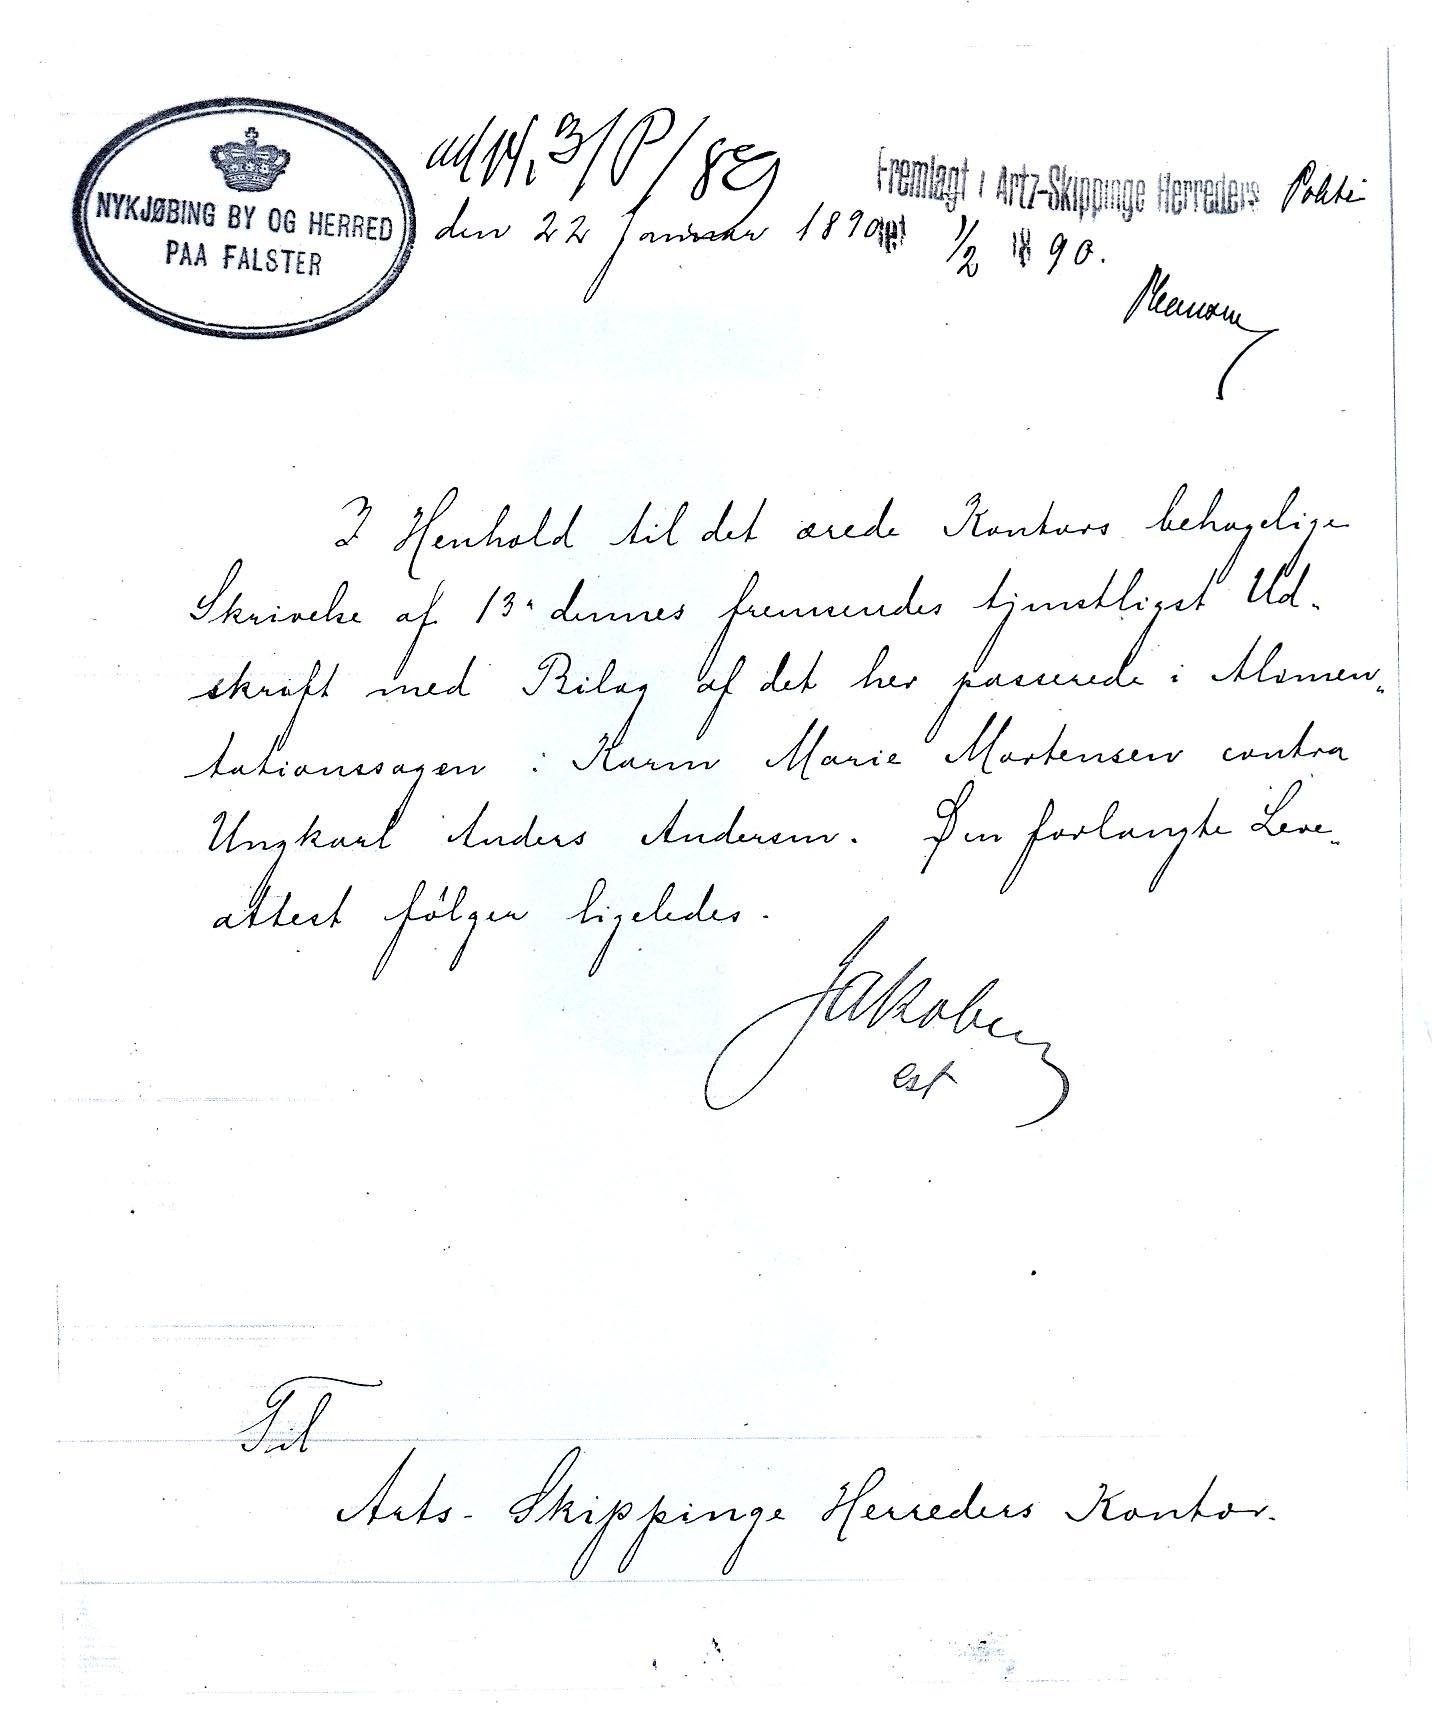 NYKJØBING BY OG HERRED
PAA FALSTER
3/P/89
den 22 Januar 1890
Fremlagt i Artz-Skippinge Herreders Politi
ret 1/2 1890.
I Henhold til det ærede Kontors behagelige
Skrivelse af 13 dennes fremsendes tjenstligst Ud-
skrift med Bilag af det her passerede i Alimen-
tationssagen : Karen Marie Mortensen contra
Ungkarl Anders Andersen. Den forlangte Leve-
attest følger ligeledes.
Jakobsen
cst
Til
Arts-Skippinge Herreders Kontor.